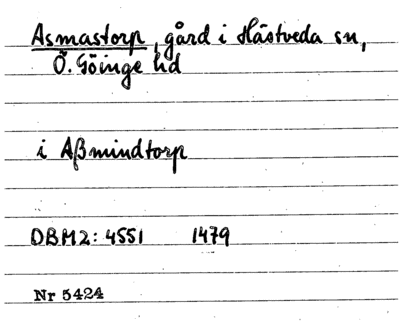 Asmastorp, gård i Hästveda sn,
Ö. Göinge hd
i Aßmindtorp
DBM2: 4551 1479
Nr 5424